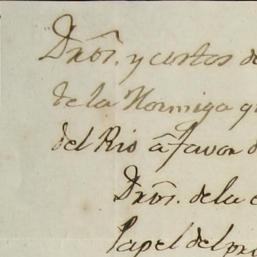 Dros. y costos de
de la Hormiga q
del Rio a favor d
Dros. de la
Papel del pro